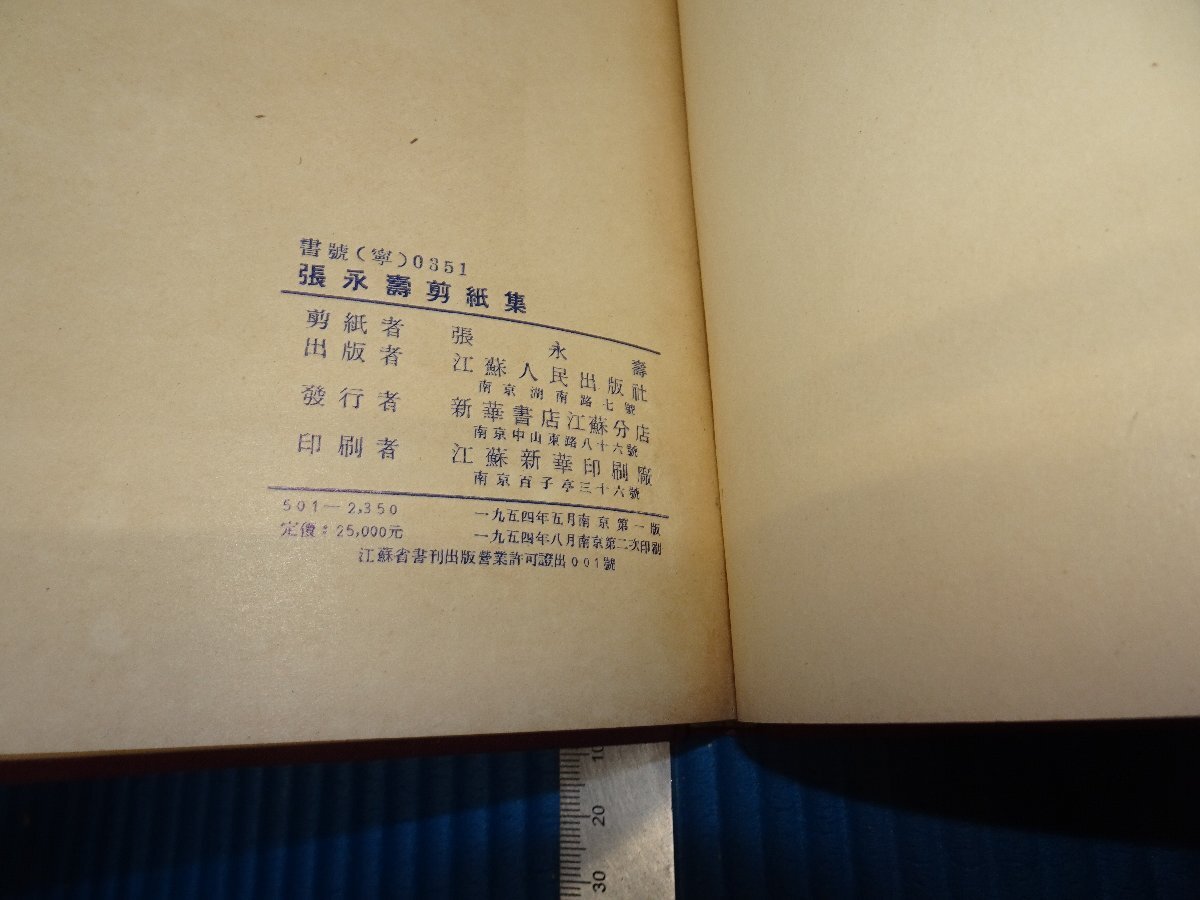 書號(寧)0351
張永壽剪紙集
剪紙者 張永壽
出版者 江蘇人民出版社
南京湖南路七號
發行者 新華書店江蘇分店
南京中山東路八十六號
印刷者 江蘇新華印刷廠
南京百子亭三十六號
501—2,350 一九五四年五月南京第一版
定價:25,000元 一九五四年八月南京第二次印刷
江蘇省書刊出版營業許可證出001號
10
20
30